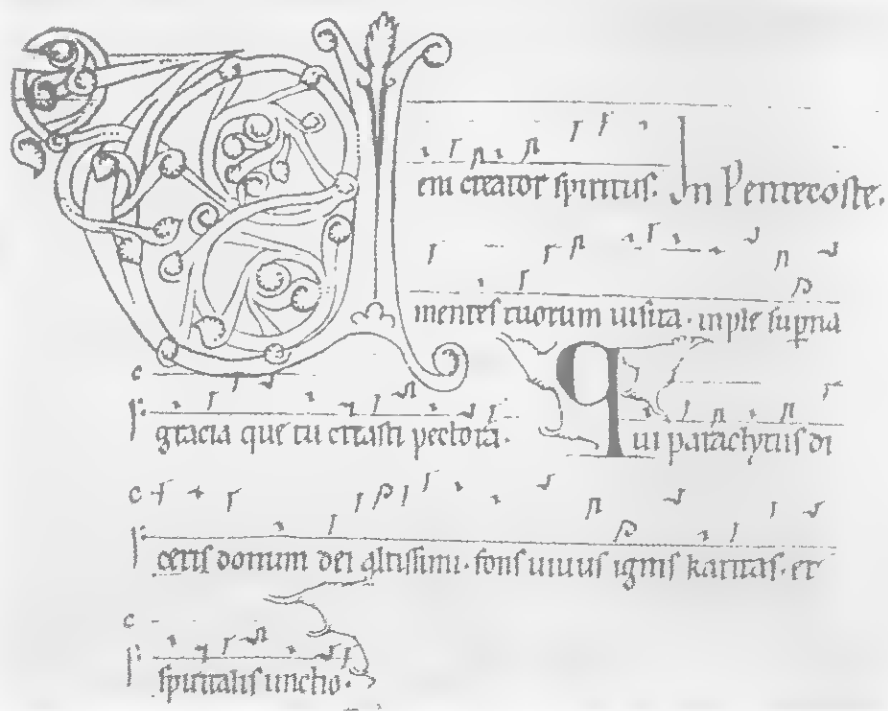 Veni creator spiritus. In Pentecoste.
mentes tuorum uisita. inple supna
gracia que tu creasti pectora. Qui paraclytus di
ceris donum dei altissimi. fons uiuus ignis karitas. et
spiritalis unctio.